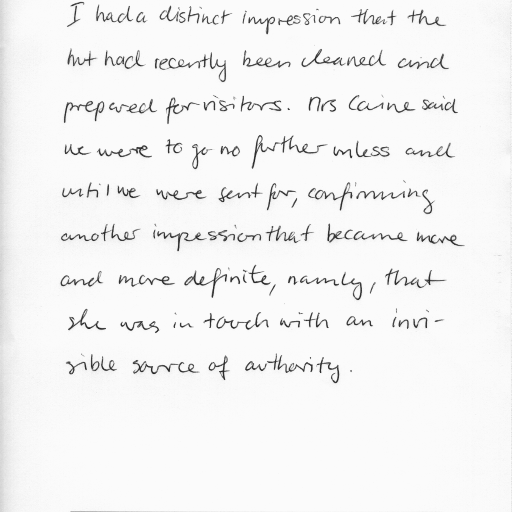 I had a distinct impression that the
hut had recently been cleaned and
prepared for visitors. Mrs Caine said
we were to go no further unless and
until we were sent for, confirming
another impession that became more
and more definite, namly, that
she was in touch with an invi-
sible source of authority.